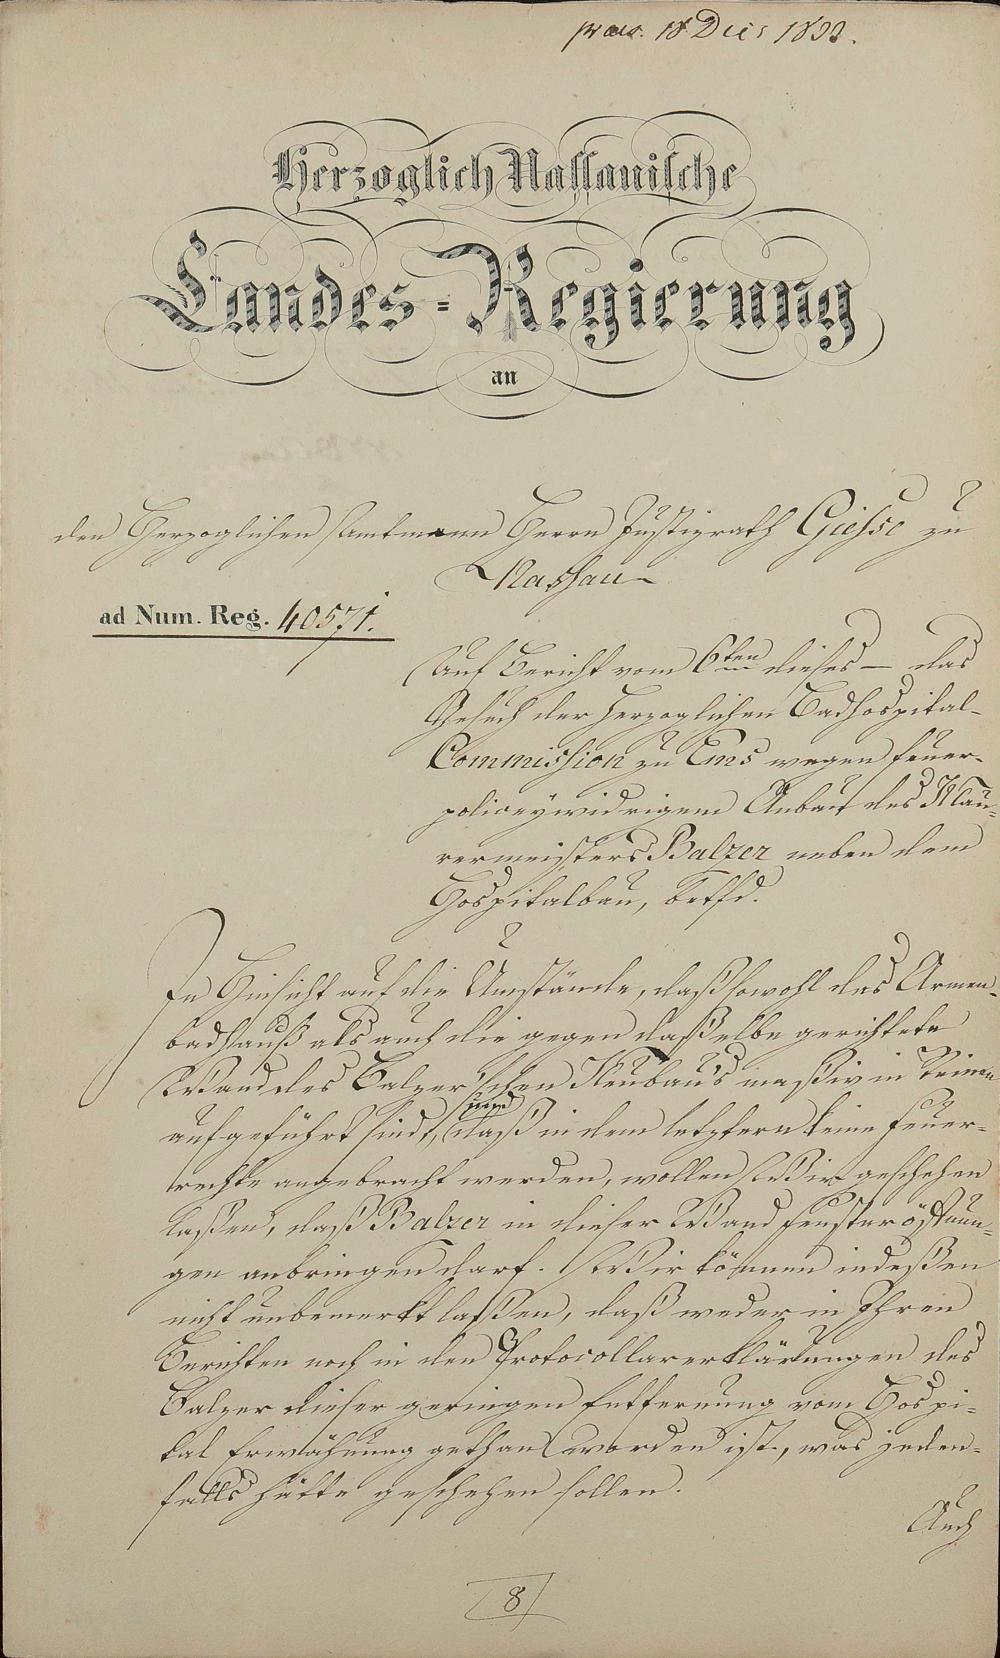 praes. 18 Decr 1822.
Herzoglich Nassauische
Landes-Regierung
an
den Herzoglichen Amtmann Herrn Justizrath Giesse zu
Nassau
ad Num. Reg. 40571.
Auf Bericht vom 6ten dieses – das
Gesuch der Herzoglichen Badhospital-
Commission zu Ems wegen feuer-
policeywidrigem Anbau des Mau-
rermeisters Balzer neben dem
Hospitalbau, betfd.
In Hinsicht auf die Umstände, daß sowohl das Armen-
badhauß als auch die gegen daßelbe gerichtete
Wand des Balzer'schen Neubau's maßiv in
aufgeführt sind, und daß in dem letztern keine Feuer-
rechte angebracht werden, wollen Wir geschehen
laßen, daß Balzer in dieser Wand Fensteröffnun-
gen anbringen darf. Wir können indeßen
nicht unbemerkt laßen, daß weder in Ihren
Berichten noch in den Protocollarerklärungen des
Balzer dieser geringen Entfernung vom Hospi-
tal Erwähnung gethan worden ist, was jeden-
falls hätte geschehen sollen.
Auch
8